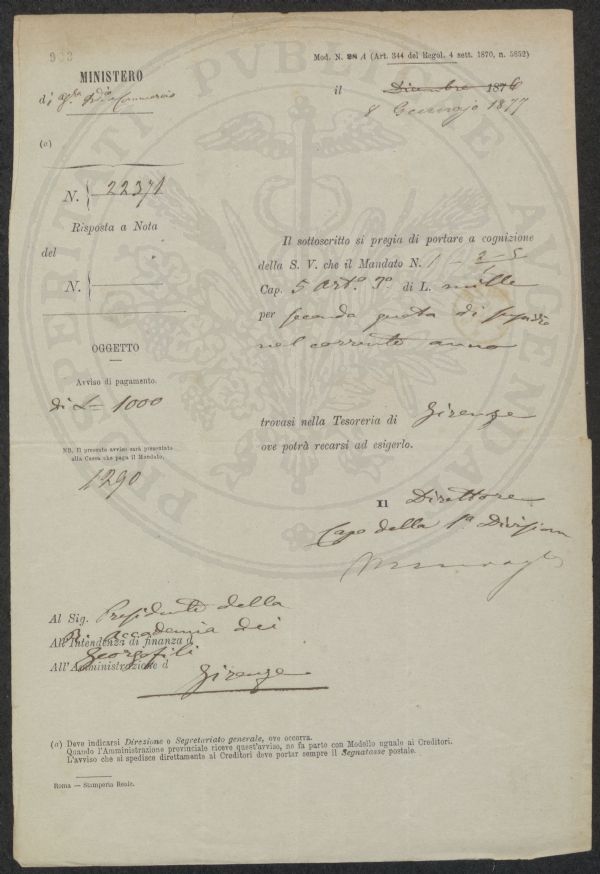 983
Mod. N. 28 A (Art. 344 del Regol. 4 sett. 1870, n. 5852)
MINISTERO
di Agra India Commercio
il Dicembre 1876
8 Gennajo 1877
(a)
N. 22371
Risposta a Nota
del
N.
OGGETTO
Avviso di pagamento.
di L. 1000
NB. Il presente avviso sarà presentato
alla Cassa che paga il Mandato.
1290
Il sottoscritto si pregia di portare a cognizione
della S. V. che il Mandato N. 1 - 2 - 5
Cap. 5 Arto di L. mille
per seconda quota di
nel corrente anno
trovasi nella Tesoreria di Firenze
ove potrà recarsi ad esigerlo.
Il Direttore
Capo della 1a Divisione
Al Sig. Presidente della
R. Accademia dei
All'Intendenza di finanza d
Georgofili
All'Amministrazione d
Firenze
(a) Deve indicarsi Direzione o Segretariato generale, ove occorra.
Quando l'Amministrazione provinciale riceve quest'avviso, ne fa parte con Modello uguale ai Creditori.
L'avviso che si spedisce direttamente ai Creditori deve portar sempre il Segnatasse postale.
Roma — Stamperia Reale.
PROSPERITATI PVBLICAE AVGENDAE